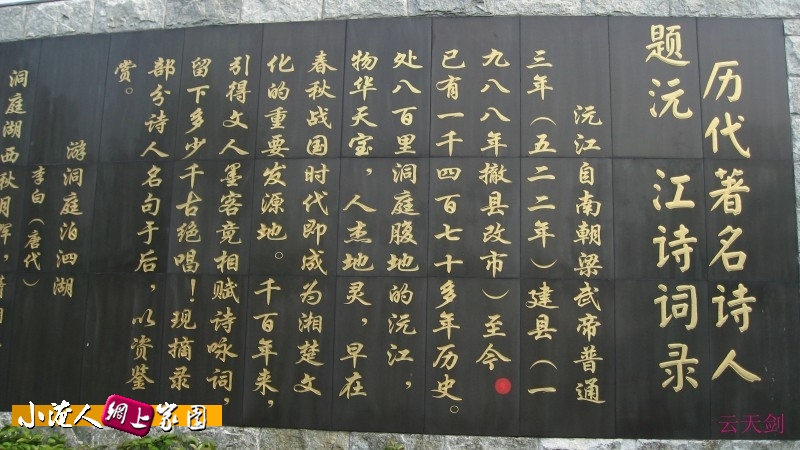 历代著名诗人
题沅江诗词录
沅江自南朝梁武帝普通
三年（五二二年）建县（一
九八八年撤县改市）至今
已有一千四百七十多年历史。
处八百里洞庭腹地的沅江，
物华天宝，人杰地灵，早在
春秋战国时代即成为湘楚文
化的重要发源地。千百年来，
引得文人墨客竞相赋诗咏词，
留下多少千古绝唱！现摘录
部分诗人名句于后，以资鉴
赏。
游洞庭泊泗湖
李白（唐代）
洞庭湖西秋月辉，
小淹人网上家园
云天剑